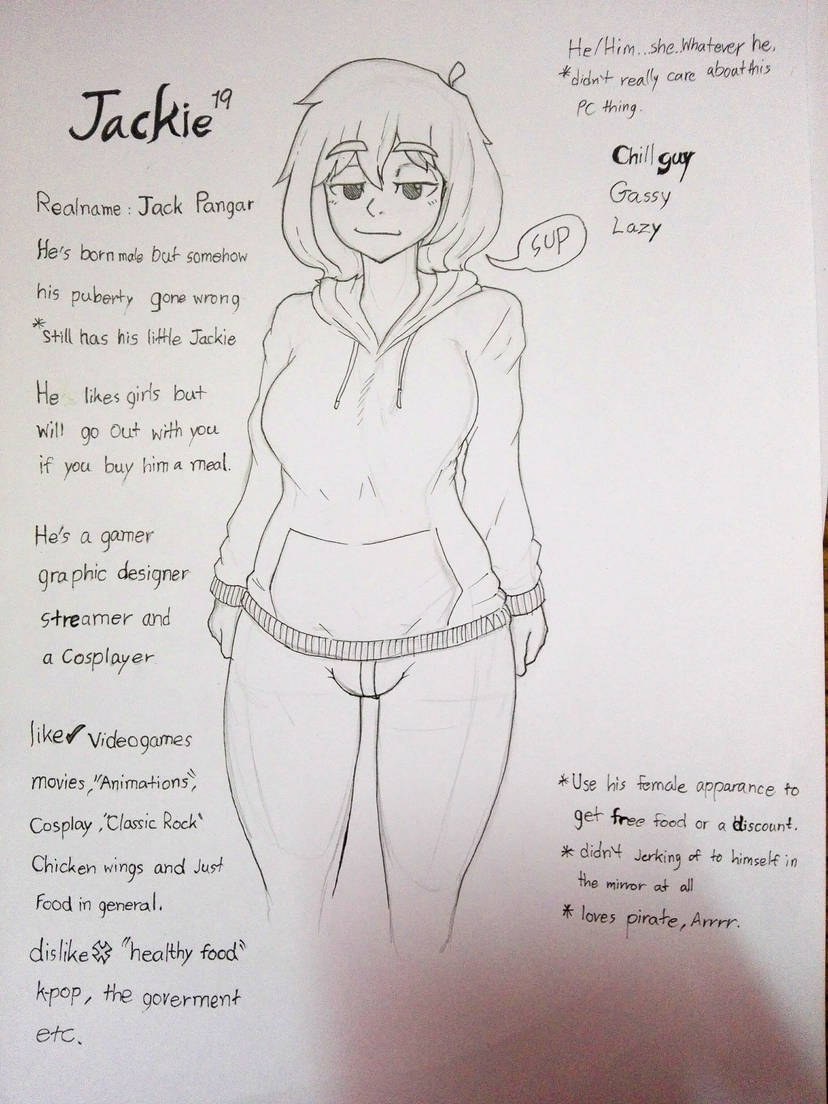 Jackie 19
Realname: Jack Pangar
He's born male but somehow
his puberty gone wrong
*still has his little Jackie
He likes girls but
will go out with you
if you buy him a meal.
He's a gamer
graphic designer
streamer and
a Cosplayer
like✔ Videogames
movies, "Animations",
Cosplay, "Classic Rock"
Chicken wings and Just
Food in general.
dislike✖ "healthy food"
k-pop, the goverment
etc.
SUP
He/Him...she..Whatever he,
*didn't really care aboat this
PC thing.
Chill guy
Gassy
Lazy
*Use his female apparance to
get free food or a discount.
*didn't Jerking of to himself in
the mirror at all
*loves pirate, Arrrr.